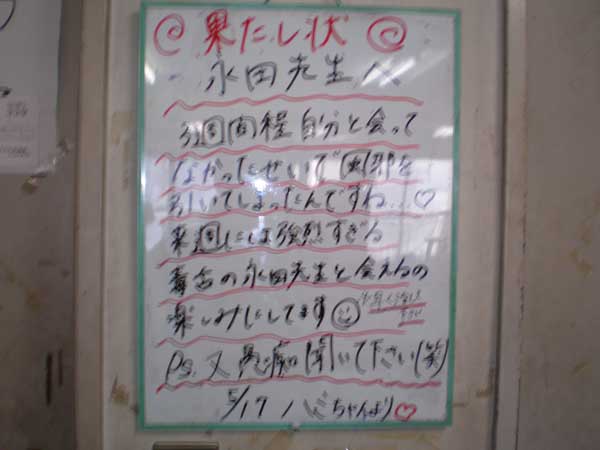 果たし状
永田先生へ
3週間程自分と会って
なかったせいで風邪を
引いてしまったんですね...♡
来週には強烈すぎる
毒舌の永田先生と会えるの
楽しみにしてます
P.S. 又愚痴聞いて下さい(笑)
5/17 ちゃんより♡